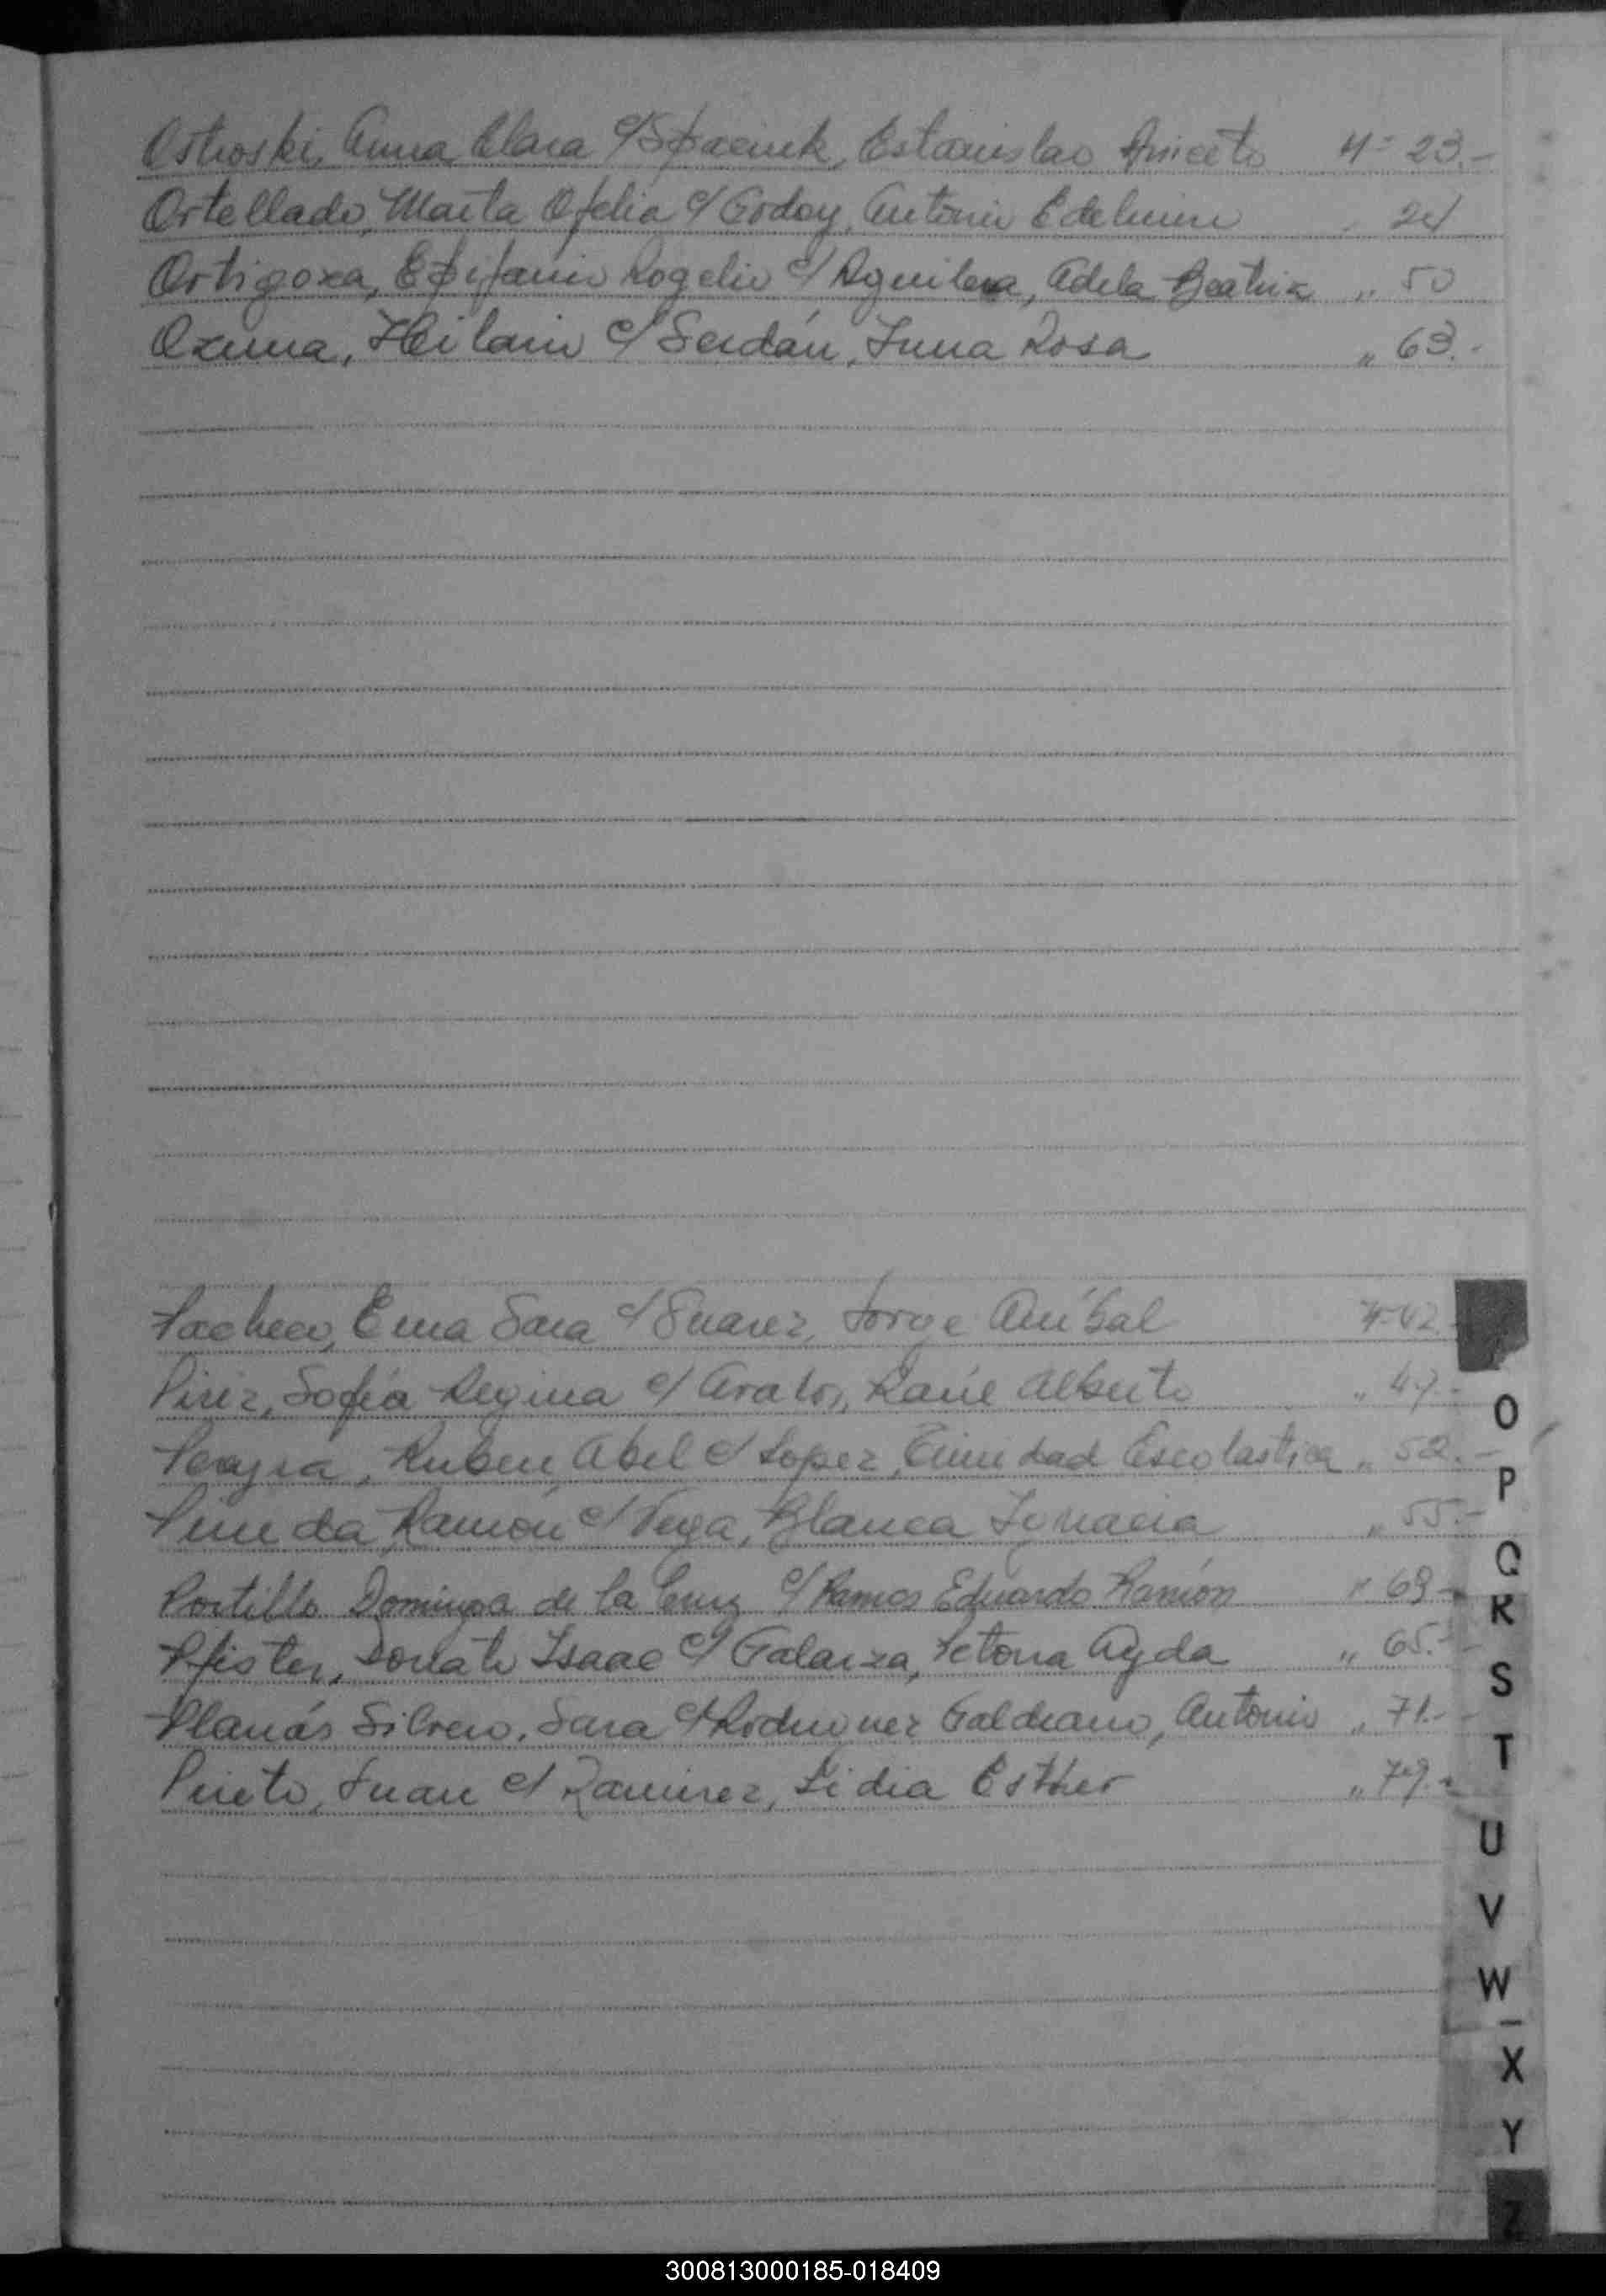 Ostroski, Anna Clara c/ Spaciuk, Estanislao Aniceto Nº 23.-
Ortellado, Marta Ofelia c/ Godoy, Antonio Edelmiro " 24
Ortigoza, Epifanio Rogelio c/ Aguilera, Adela Beatriz " 50
Ozuna, Hilario c/ Serdán, Juna Rosa " 63.-
Pacheco, Ema Sara c/ Suarez, Jorge Aníbal Nº 42.-
Piriz, Sofía Regina c/ Raúl Alberto " 47.-
Pereyra, Ruben Abel c/ Lopez, Trinidad Escolastica " 52.-
Pineda, Ramón c/ Vega, Blanca Ignacia " 55.-
Portillo Dominga de la Cruz c/ Ramos Eduardo Ramón " 69-
Pfister, Donato Isaac c/ Galarza, Petona Ayda " 65.-
Planás Silvero, Sara c/ Rodriguez Galdeano, Antonio " 71.-
Prieto, Juan c/ Ramirez, Lidia Esther " 79.-
O
P
Q
R
S
T
U
V
W
X
Y
Z
300813000185-018409